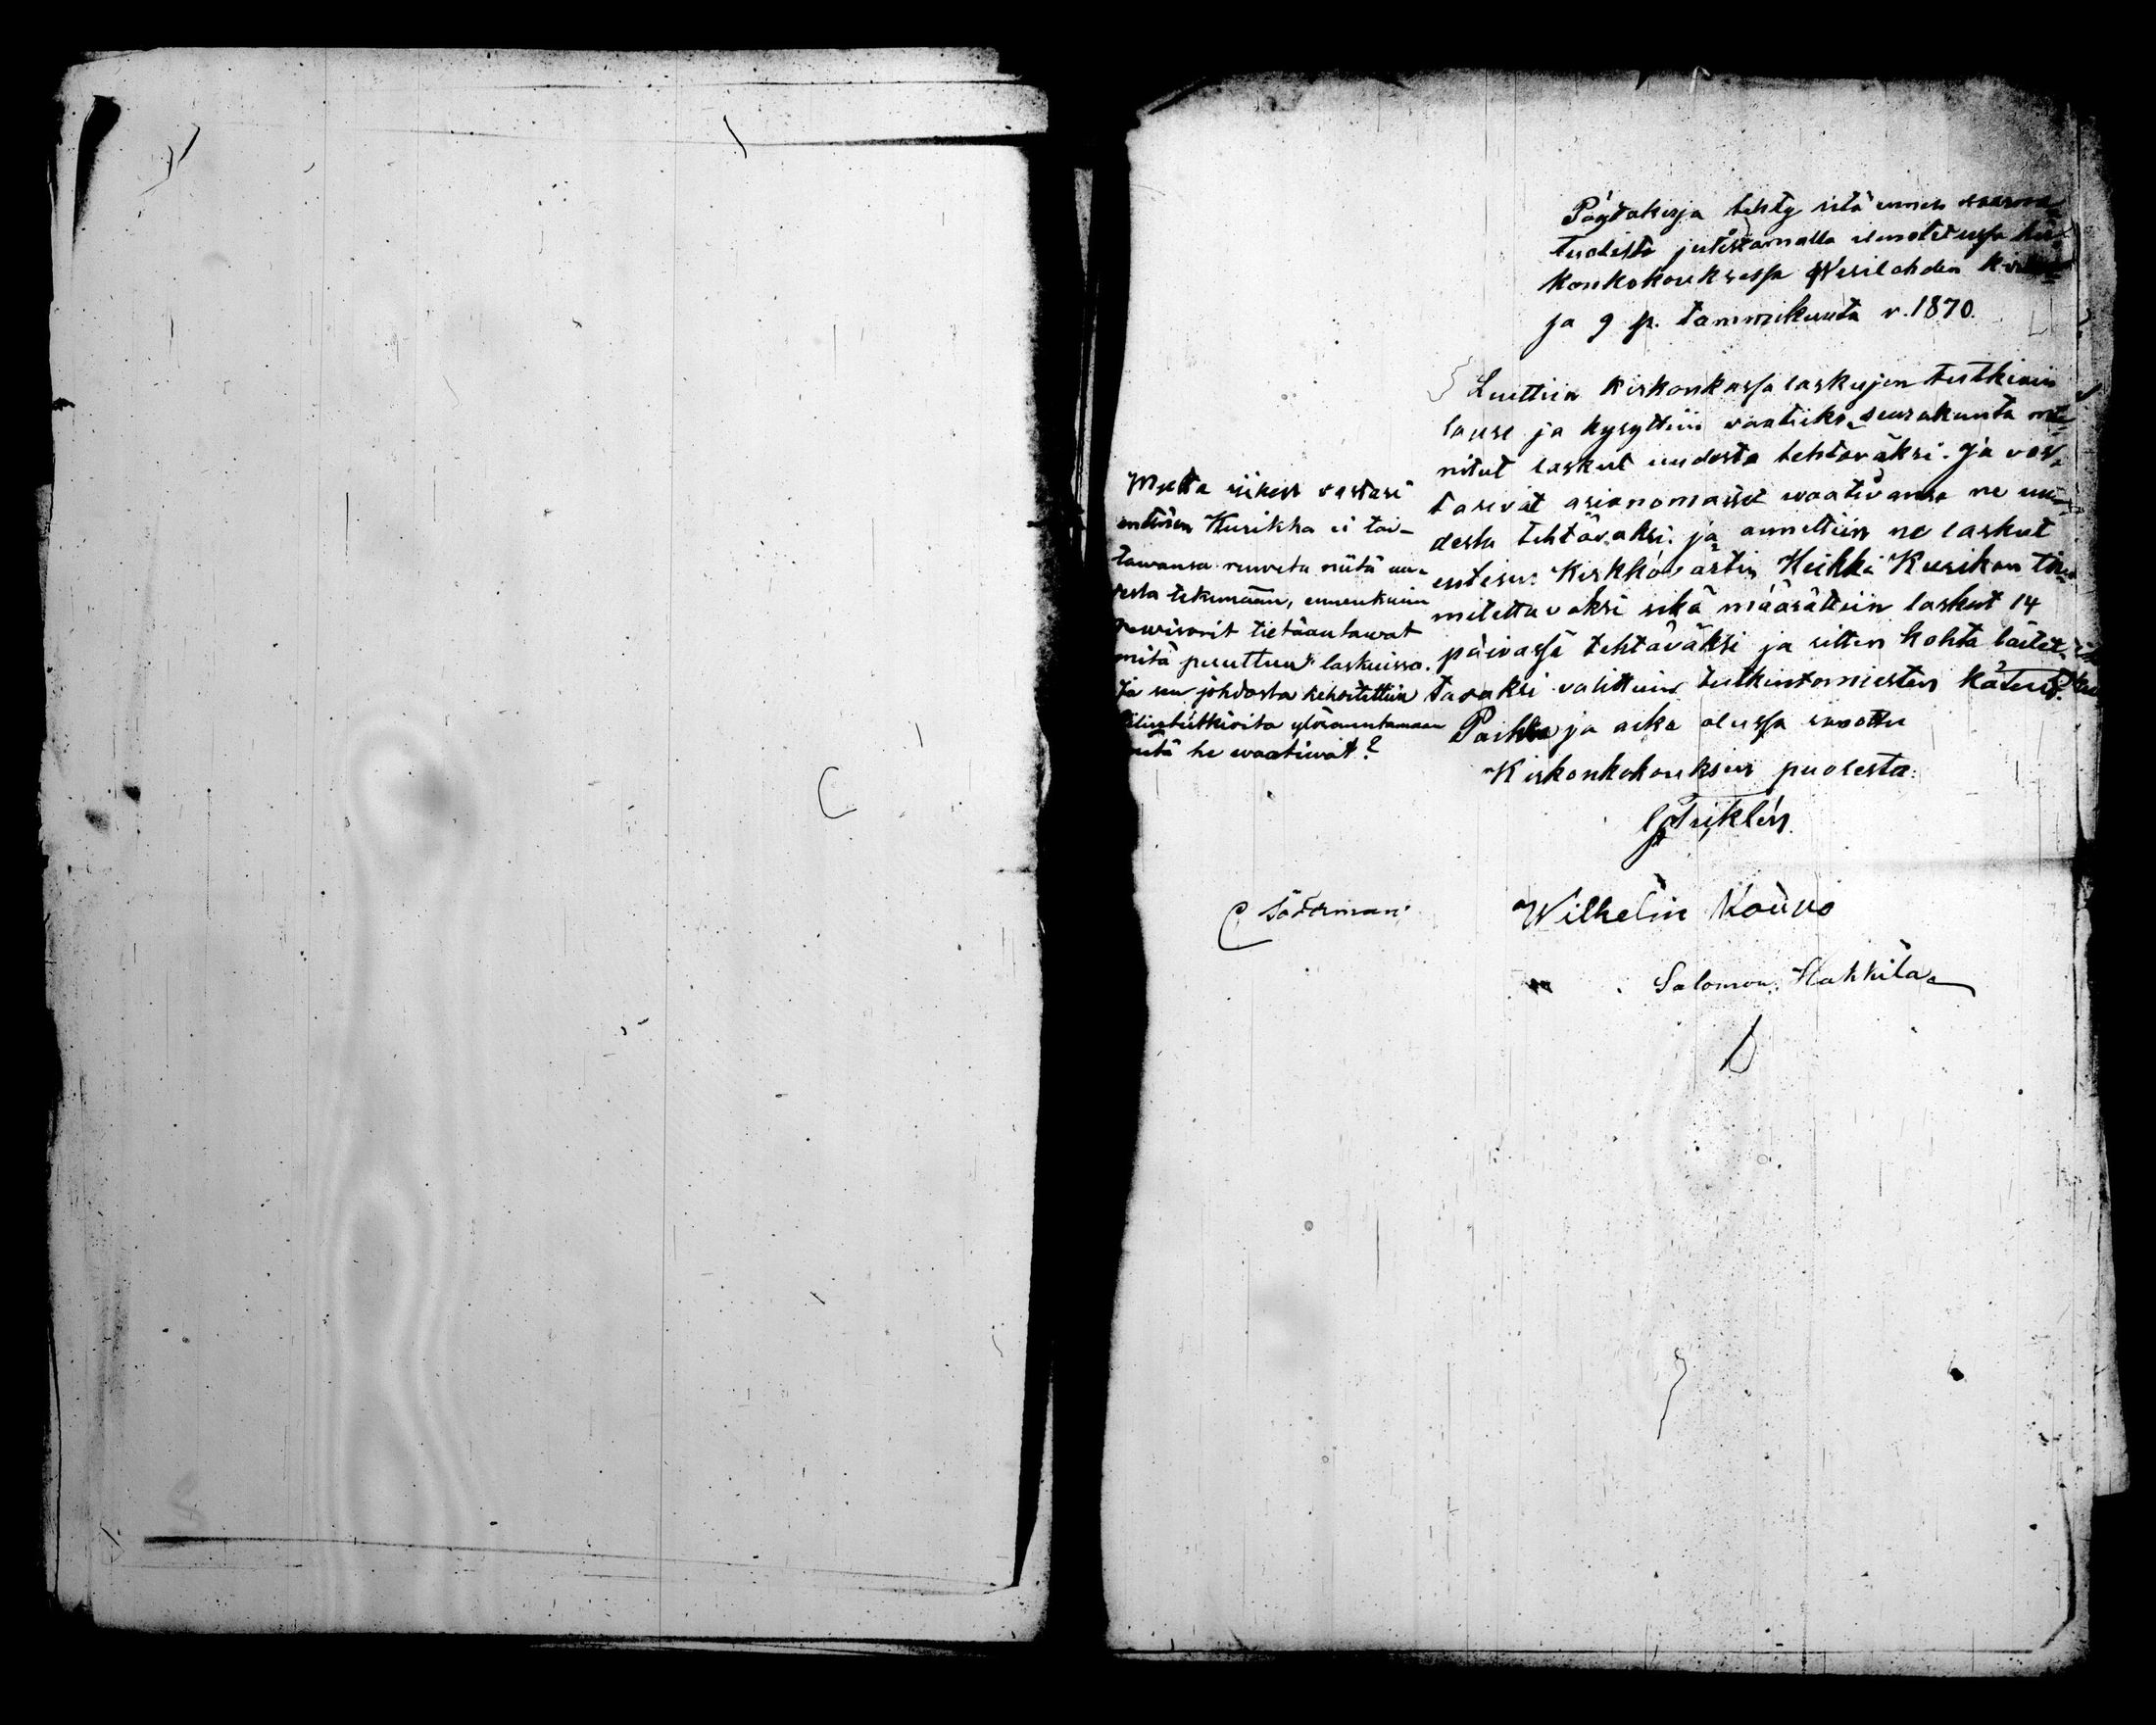 Pöytäkirja tehty sitä ennen saarna
tuolista julistamalla ilmotetussa kir
konkokouksessa Wesilahden kirkos
sa 9 p. tammikuuta v. 1870.
Luettiin kirkonkassa laskujen tutkinin
lause ja kysyttiin vaatiiko seurakunta mai
nitut laskut uudesta tehtäväksi. Ja vas
tasivat asianomaiset waativansa ne uu
desta tehtäväksi: ja annettiin ne laskut
entisen Kirkkovärtin Heikki Kusikan toi
mitettavaksi sekä määrättiin laskut 14
päivässä tehtäväksi ja sitten kohta laitet
tavaksi valittuin tutkintomiesten käteen.
Paikka ja aika alussa sanottu
Kirkonkokouksen puolesta:
Mutta siihen vastasi
entinen Kusikka ei tai-
tawansa ruveta niitä uu-
desta tekemään, ennenkuin
rewisorit tietäantawat
mitä puuttuu laskuissa.
Ja sen johdosta kehoitettiin
tilintutkioita ylösantamaan
mitä he waatiwat?
C Söderman
Wilhelm Kouvo
Salomon Hakkila